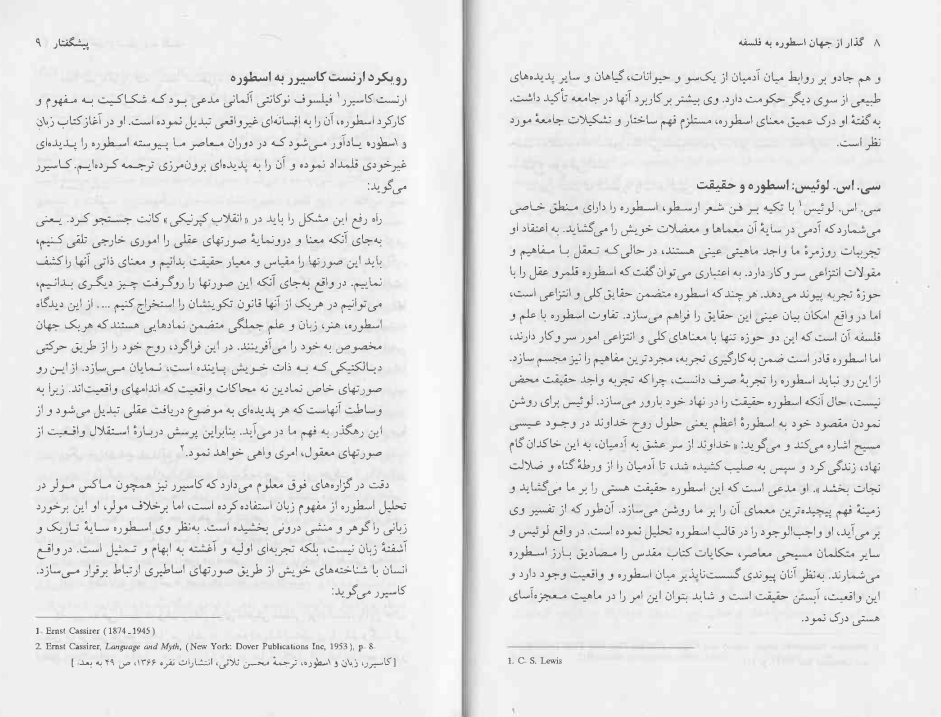 ۸ گذار از جهان اسطوره به فلسفه
و هم جادو بر روابط میان آدمیان از یک‌سو و حیوانات، گیاهان و سایر پدیده‌های
طبیعی از سوی دیگر حکومت دارد. وی بیشتر بر کاربرد آنها در جامعه تأکید داشت.
به گفتهٔ او درک عمیق معنای اسطوره، مستلزم فهم ساختار و تشکیلات جامعهٔ مورد
نظر است.
سی. اس. لوئیس: اسطوره و حقیقت
سی. اس. لوئیس۱ با تکیه بر فن شعر ارسطو، اسطوره را دارای منطق خاصی
می‌شمارد که آدمی در سایهٔ آن معماها و معضلات خویش را می‌گشاید. به اعتقاد او
تجربیات روزمرهٔ ما واجد ماهیتی عینی هستند، در حالی‌که تعقل با مفاهیم و
مقولات انتزاعی سر و کار دارد. به اعتباری می‌توان گفت که اسطوره قلمرو عقل را با
حوزهٔ تجربه پیوند می‌دهد. هر چند که اسطوره متضمن حقایق کلی و انتزاعی است،
اما در واقع امکان بیان عینی این حقایق را فراهم می‌سازد. تفاوت اسطوره با علم و
فلسفه آن است که این دو حوزه تنها با معناهای کلی و انتزاعی امور سر و کار دارند،
اما اسطوره قادر است ضمن به‌کارگیری تجربه، مجردترین مفاهیم را نیز مجسم سازد.
از این رو نباید اسطوره را تجربهٔ صرف دانست، چرا که تجربه واجد حقیقت محض
نیست، حال آنکه اسطوره حقیقت را در نهاد خود بارور می‌سازد. لوئیس برای روشن
نمودن مقصود خود به اسطورهٔ اعظم یعنی حلول روح خداوند در وجود عیسی
مسیح اشاره می‌کند و می‌گوید: «خداوند از سر عشق به آدمیان، به این خاکدان گام
نهاد، زندگی کرد و سپس به صلیب کشیده شد، تا آدمیان را از ورطهٔ گناه و ضلالت
نجات بخشد». او مدعی است که این اسطوره حقیقت هستی را بر ما می‌گشاید و
زمینهٔ فهم پیچیده‌ترین معمای آن را بر ما روشن می‌سازد. آن‌طور که از تفسیر وی
بر می‌آید، او واجب‌الوجود را در قالب اسطوره تحلیل نموده است. در واقع لوئیس و
سایر متکلمان مسیحی معاصر، حکایات کتاب مقدس را مصادیق بارز اسطوره
می‌شمارند. به‌نظر آنان پیوندی گسست‌ناپذیر میان اسطوره و واقعیت وجود دارد و
این واقعیت، آبستن حقیقت است و شاید بتوان این امر را در ماهیت معجزه‌آسای
هستی درک نمود.
1. C. S. Lewis
پیشگفتار ۹
رویکرد ارنست کاسیرر به اسطوره
ارنست کاسیرر۱ فیلسوف نوکانتی آلمانی مدعی بود که شکاکیت به مفهوم و
کارکرد اسطوره، آن را به افسانه‌ای غیرواقعی تبدیل نموده است. او در آغاز کتاب زبان
و اسطوره یادآور می‌شود که در دوران معاصر ما پیوسته اسطوره را پدیده‌ای
غیرخودی قلمداد نموده و آن را به پدیده‌ای برون‌مرزی ترجمه کرده‌ایم. کاسیرر
می‌گوید:
راه رفع این مشکل را باید در «انقلاب کپرنیکی» کانت جستجو کرد. یعنی
به‌جای آنکه معنا و درونمایهٔ صورتهای عقلی را اموری خارجی تلقی کنیم،
باید این صورتها را مقیاس و معیار حقیقت بدانیم و معنای ذاتی آنها را کشف
نماییم. در واقع به‌جای آنکه این صورتها را روگرفت چیز دیگری بدانیم،
می‌توانیم در هریک از آنها قانون تکوینشان را استخراج کنیم .... از این دیدگاه
اسطوره، هنر، زبان و علم جملگی متضمن نمادهایی هستند که هریک جهان
مخصوص به خود را می‌آفرینند. در این فراگرد، روح خود را از طریق حرکتی
دیالکتیکی که به ذات خویش پاینده است، نمایان می‌سازد. از این رو
صورتهای خاص نمادین نه محاکات واقعیت که اندامهای واقعیت‌اند. زیرا به
وساطت آنهاست که هر پدیده‌ای به موضوع دریافت عقلی تبدیل می‌شود و از
این رهگذر به فهم ما در می‌آید. بنابراین پرسش دربارهٔ استقلال واقعیت از
صورتهای معقول، امری واهی خواهد نمود.۲
دقت در گزاره‌های فوق معلوم می‌دارد که کاسیرر نیز همچون ماکس مولر در
تحلیل اسطوره از مفهوم زبان استفاده کرده است، اما برخلاف مولر، او این برخورد
زبانی را گوهر و منشی درونی بخشیده است. به‌نظر وی اسطوره سایهٔ تاریک و
آشفتهٔ زبان نیست، بلکه تجربه‌ای اولیه و آغشته به ابهام و تمثیل است. در واقع
انسان با شناخته‌های خویش از طریق صورتهای اساطیری ارتباط برقرار می‌سازد.
کاسیرر می‌گوید:
1. Ernst Cassirer (1874_1945)
2. Ernst Cassirer, Language and Myth, (New York: Dover Publications Inc, 1953), p. 8.
[کاسیرر، زبان و اسطوره، ترجمهٔ محسن ثلاثی، انتشارات نقره ۱۳۶۶، ص ۴۹ به بعد. ]